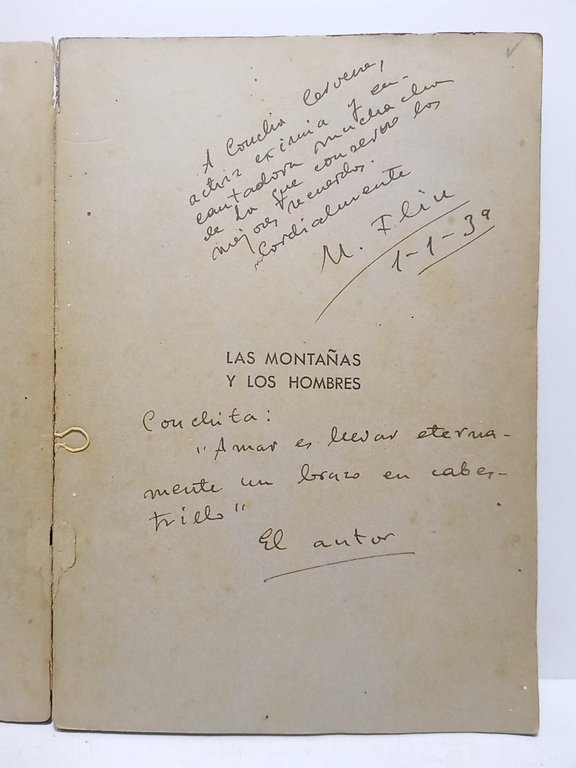 A Concha Cervera,
actriz eximia y en-
cantadora muchacha
de la que conservo los
mejores recuerdos.
Cordialmente
M. Ilin
1-1-39
LAS MONTAÑAS
Y LOS HOMBRES
Conchita:
"Amar es llevar eterna-
mente un brazo en cabes-
trillo"
El autor